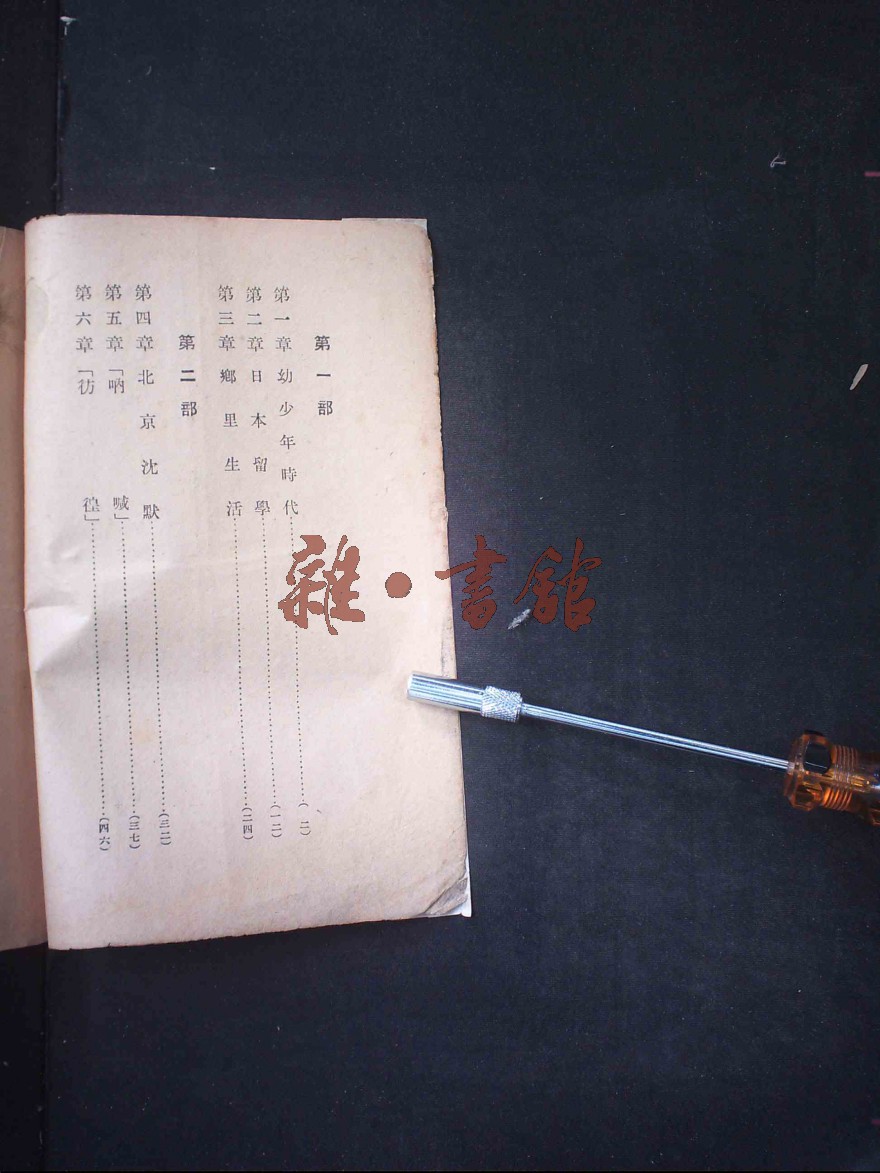 第一部
第一章 幼少年時代……(二)
第二章 日本留學……(一二)
第三章 鄉里生活……(二四)
第二部
第四章 北京沈默……(三二)
第五章 「吶喊」……(三七)
第六章 「彷徨」……(四六)
雜·書館